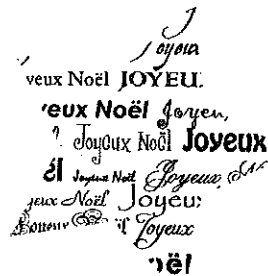 Joyeux
yeux Noël JOYEU
eux Noël Joyeu
Joyeux Noël Joyeux
ël Joyeux Noël Joyeux
yeux Noël Joyeux
Joyeux
oël